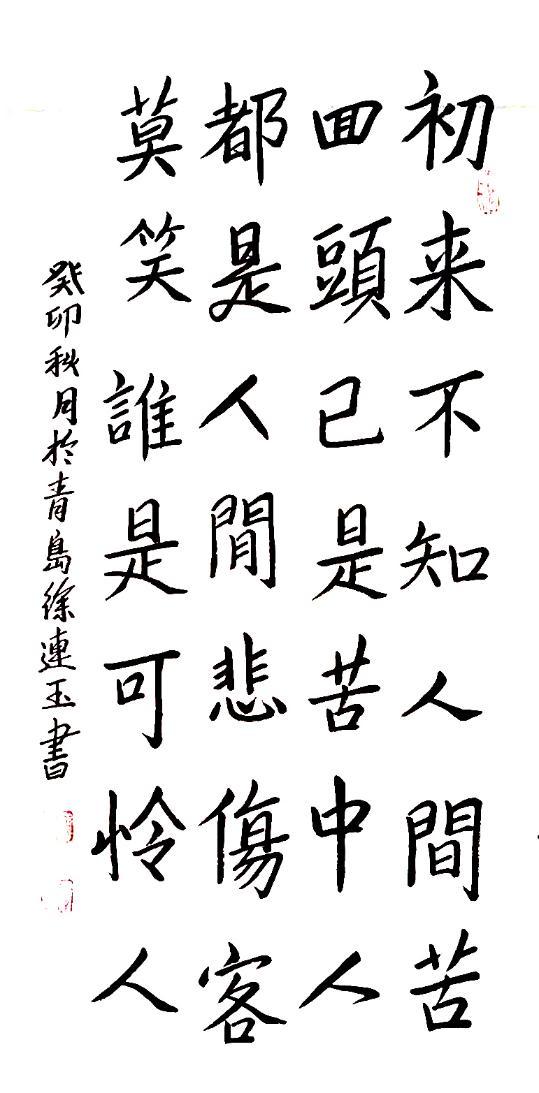 初来不知人間苦
回頭已是苦中人
都是人間悲傷客
莫笑誰是可怜人
癸卯秋月於青島徐連玉書